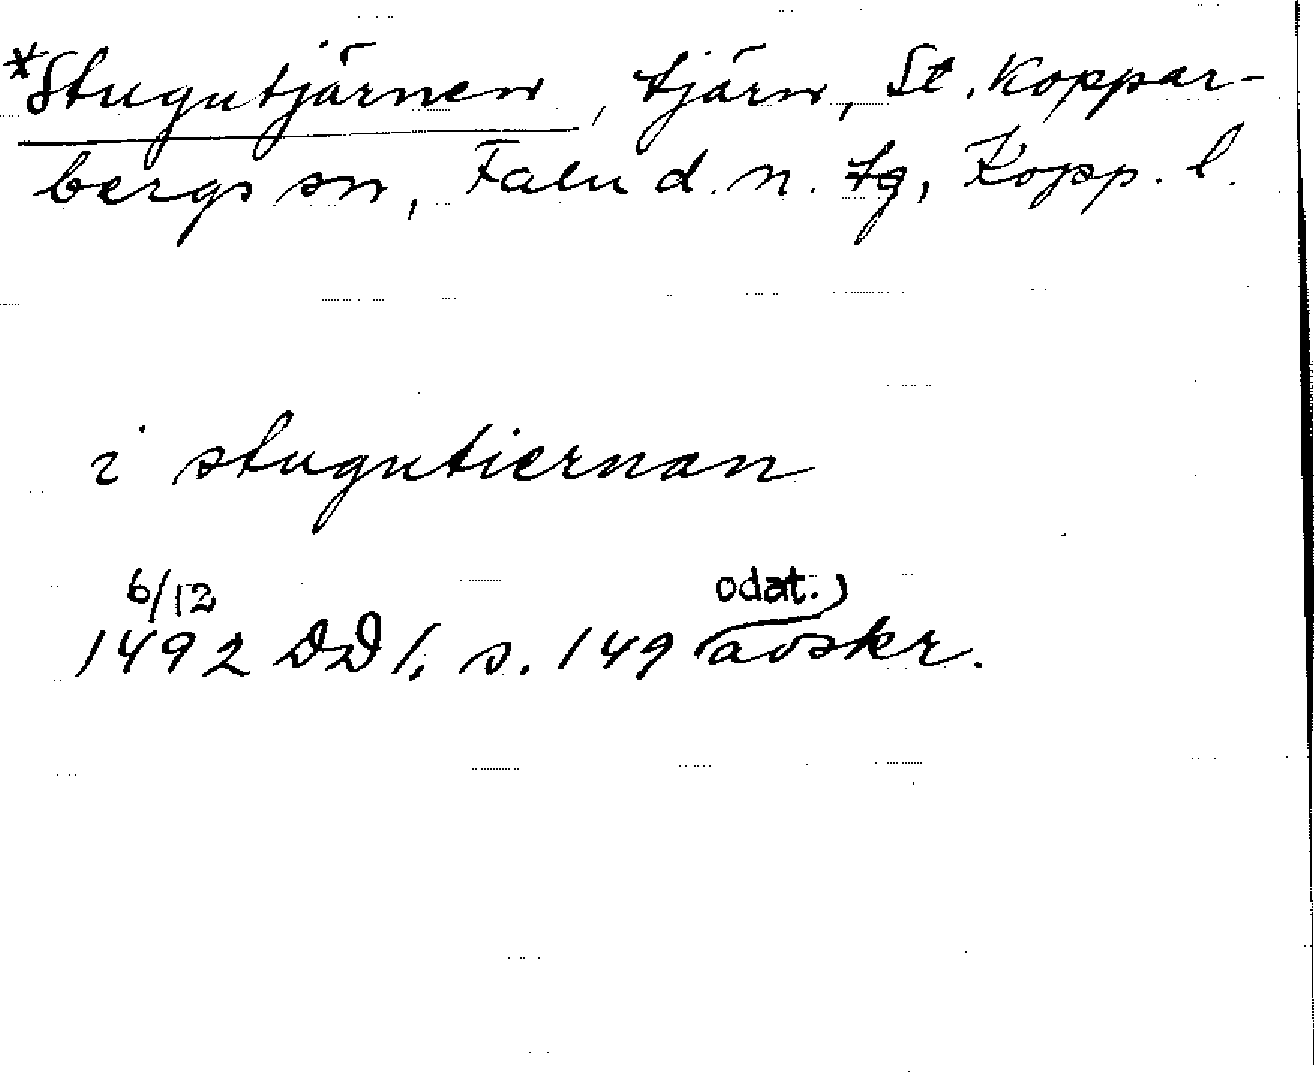 *Stugutjärnen, tjärn, St. Koppar-
bergs sn, Falu d. n. tg, Kopp. l.
i stugutiernan
6/12 odat.)
1492 DD 1, s. 149 avskr.